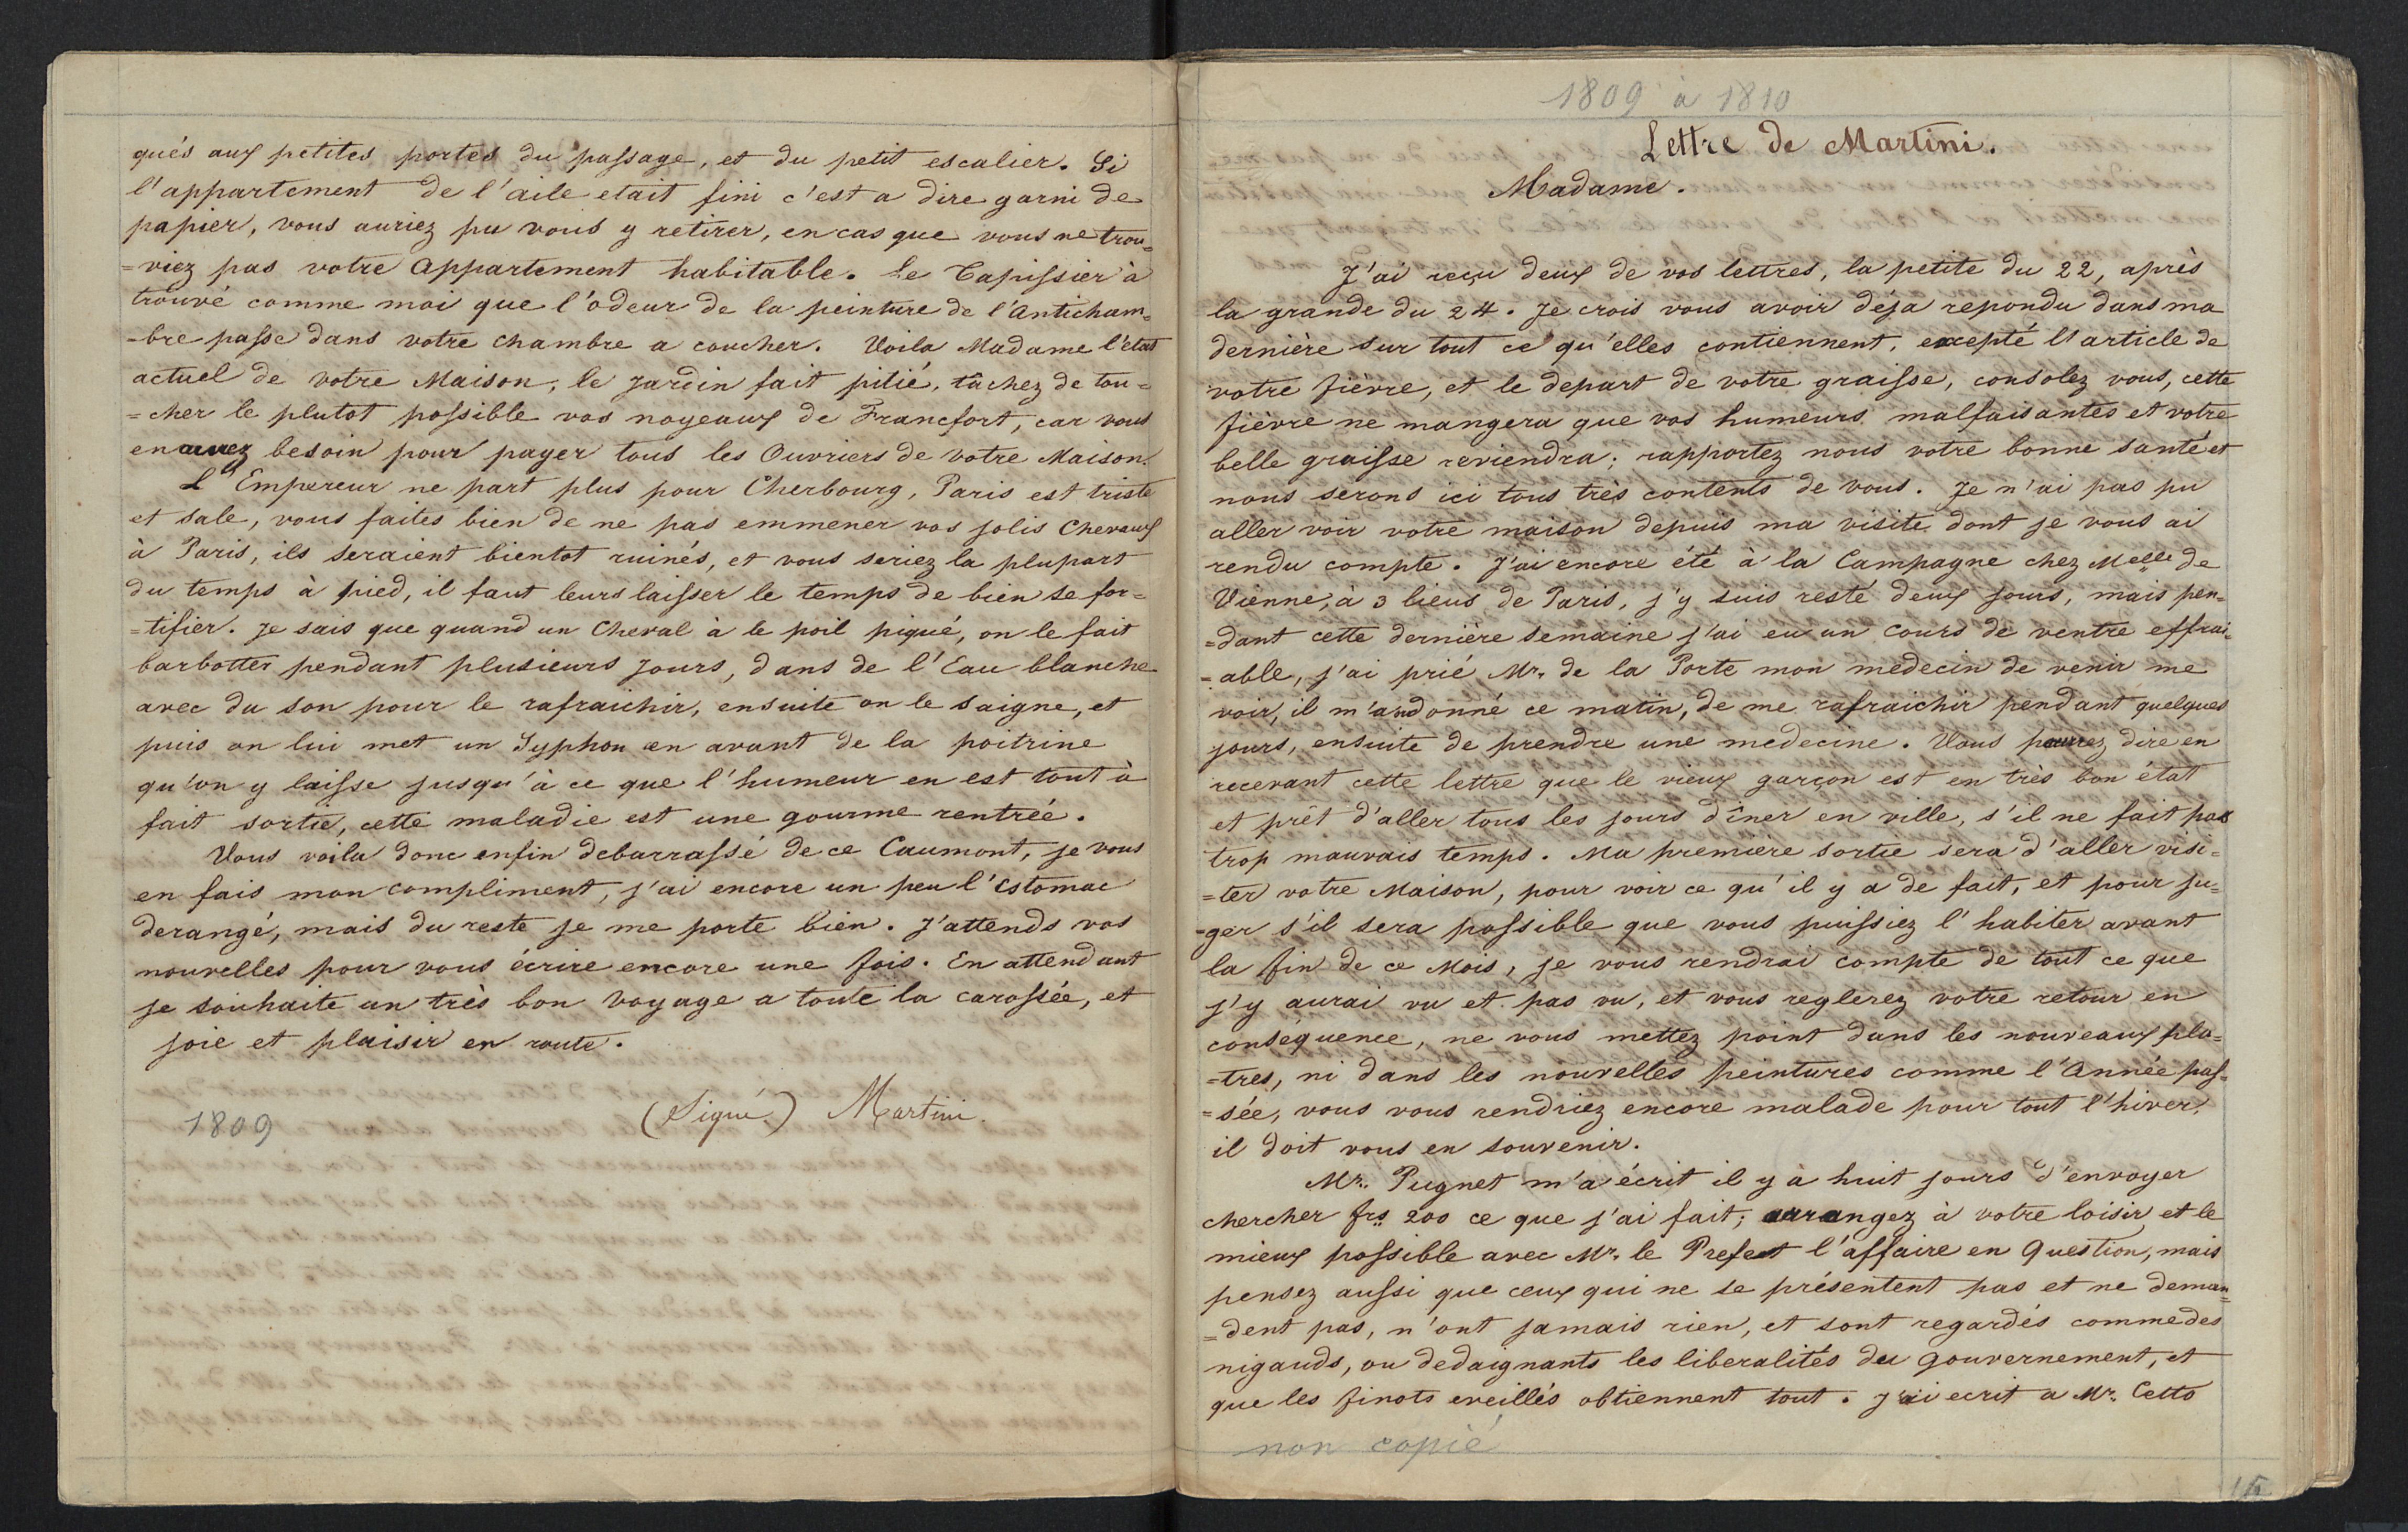 qués aux petites portes du passage, et du petit escalier. Si
l'appartement de l'aile etait fini c'est a dire garni de
papier, vous auriez pu vous y retirer, en cas que vous ne trou=
=viez pas votre appartement habitable. Le Tapissier à
trouvé comme moi que l'odeur de la peinture de l'Anticham=
=bre passe dans votre chambre a coucher. Voila Madame l'état
actuel de votre Maison, le jardin fait pitié, tâchez de tou=
=cher le plutot possible vos noyeaux de Francfort, car vous
en aurez besoin pour payer tous les Ouvriers de votre Maison.
L'Empereur ne part plus pour Cherbourg, Paris est triste
et sale, vous faites bien de ne pas emmener vos jolis Chevaux
à Paris, ils seraient bientot ruinés, et vous seriez la plupart
du temps à pied, il faut leurs laisser le temps de bien se for=
=tifier. Je sais que quand un Cheval à le poil piqué, on le fait
barbotter pendant plusieurs jours, dans de l'Eau blanche
avec du son pour le rafraichir, ensuite on le saigne, et
puis on lui met un Syphon en avant de la poitrine
qu'on y laisse jusqu'à ce que l'humeur en est tout à
fait sortie, cette maladie est une gourme rentrée.
Vous voila donc enfin debarrassé de ce Caumont, je vous
en fais mon compliment, j'ai encore un peu l'Estomac
derangé, mais du reste je me porte bien. J'attends vos
nouvelles pour vous écrire encore une fois. En attendant
je souhaite un très bon voyage a toute la carossée, et
joie et plaisir en route.
(Signé) Martini.
1809
1809 à 1810
Lettre de Martini.
Madame.
J'ai reçu deux de vos lettres, la petite du 22, après
la grande du 24. Je crois vous avoir déja repondu dans ma
dernière sur tout ce qu'elles contiennent, excepté l'article de
votre fièvre, et le depart de votre graisse, consolez vous, cette
fièvre ne mangera que vos humeurs malfaisantes et votre
belle graisse reviendra; rapportez nous votre bonne santé et
nous serons ici tous très contents de vous. Je n'ai pas pu
aller voir votre maison depuis ma visite dont je vous ai
rendu compte. J'ai encore été à la Campagne chez Melle de
Vienne, à 3 lieus de Paris, j'y suis resté deux jours, mais pen=
=dant cette dernière semaine j'ai eu un cours de ventre effrai=
=able, j'ai prié Mr. de la Porte mon medecin de venir me
voir, il m'a ordonné ce matin, de me rafraichir pendant quelques
jours, ensuite de prendre une medecine. Vous pouvez dire en
recevant cette lettre que le vieux garçon est en très bon état
et prêt d'aller tous les jours dîner en ville, s'il ne fait pas
trop mauvais temps. Ma première sortie sera d'aller visi=
=ter votre Maison, pour voir ce qu'il y a de fait, et pour ju=
=ger s'il sera possible que vous puissiez l'habiter avant
la fin de ce Mois, je vous rendrai compte de tout ce que
j'y aurai vu et pas vu, et vous reglerez votre retour en
conséquence, ne vous mettez point dans les nouveaux pla=
=tres, ni dans les nouvelles peintures comme l'Année pas=
=sée, vous vous rendriez encore malade pour tout l'hiver,
il doit vous en souvenir.
Mr. Pugnet m'a écrit il y à huit jours d'envoyer
chercher frs 200 ce que j'ai fait; arrangez à votre loisir et le
mieux possible avec Mr. le Prefect l'affaire en question, mais
pensez aussi que ceux qui ne se présentent pas et ne deman=
=dent pas, n'ont jamais rien, et sont regardés comme des
nigauds, ou dedaignants les liberalités du gouvernement, et
que les finots eveillés obtiennent tout. J'ai ecrit a Mr. Cetto
non copié
15